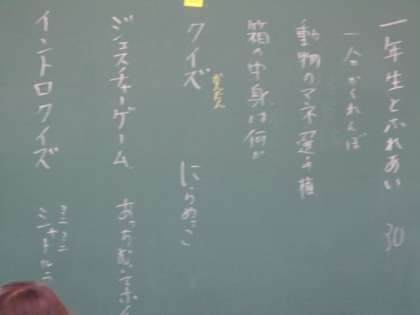 一年生とふれあい 30
一人かくれんぼ
動物のマネ
箱の中身は何か
クイズ かんたん にらめっこ
ジェスチャーゲーム あっちむいてホイ
イントロクイズ ミニミニ